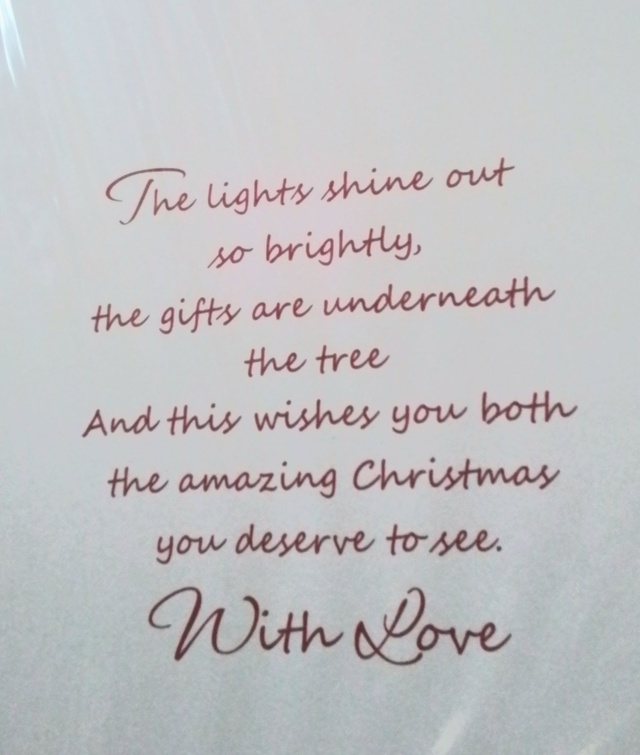 The lights shine out
so brightly,
the gifts are underneath
the tree
And this wishes you both
the amazing Christmas
you deserve to see.
With Love